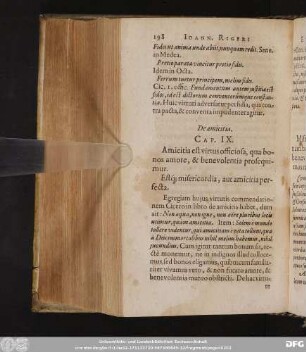 198 IOANN. RIGERI
Fides ut anima unde abiit, nunquam redit. Sen.
in Medea.
Prettio parata vincitur pretio fides.
Idem in Octa.
Ferrum tuetur principem, melius fides.
Cic. 1. offic. Fundamentum autem justitiæ est
fides, id est dictorum conventorumque constan-
tia. Huic virtuti adversatur perfidia, quæ con-
tra pacta, & conventa impudenter agitur.
De amicitia.
CAP. IX.
Amicitia est virtus officiosa, qua bo-
nos amore, & benevolentia prosequi-
mur.
Estq; misericordia, aut amicitia per-
fecta.
Egregiam hujus virtutis commendatio-
nem Cicero in libro de amicitia habet, dum
ait: Non aqua, non igne, non aere pluribus locis
utimur, quam amicitia. Item: Solem e mundo
tollere videntur, qui amicitiam e vita tollunt, qua
a Deo immortali nihil melius habemus, nihil
jucundius. Cum igitur tantum bonum sit, re-
cte monemur, ne in indignos illud colloce-
mus, sed bonos eligamus, quibuscum familia-
riter vivamus vero, & non fucato amore, &
benevolentia mutuo obstricti. De hac virtu-
te